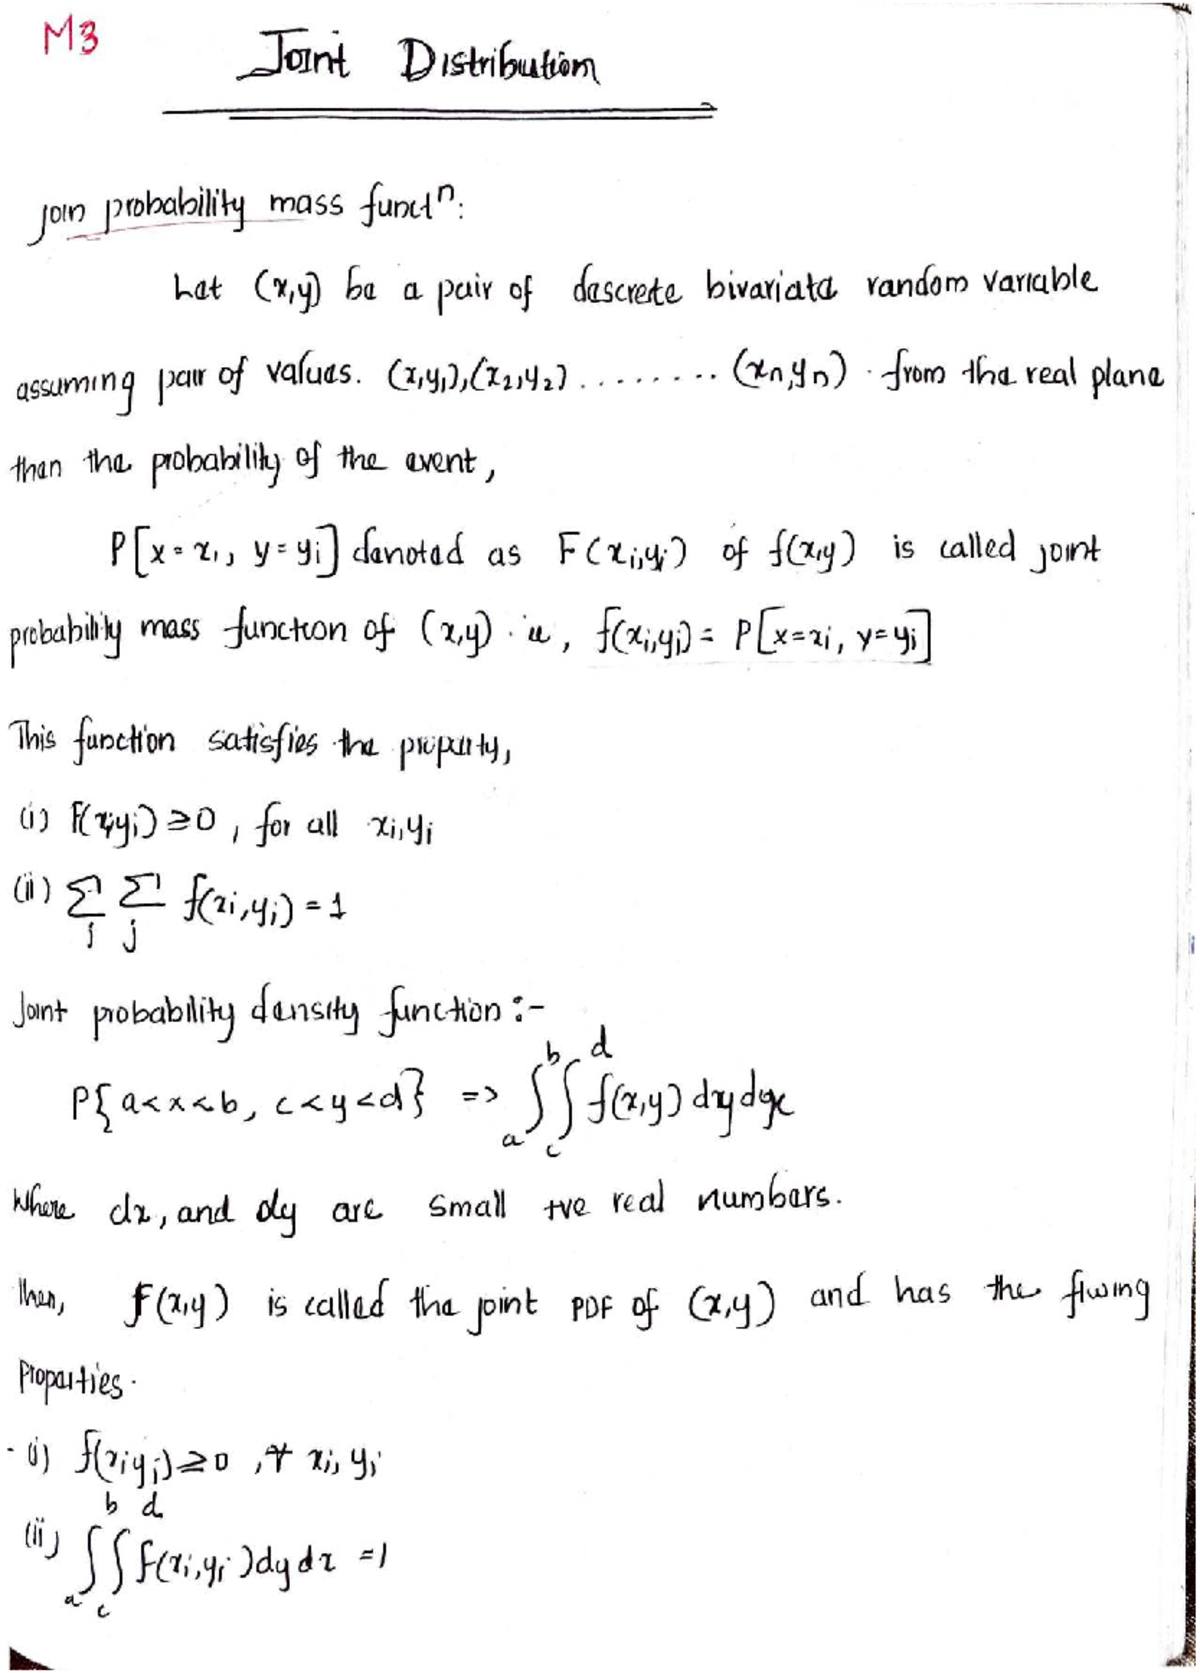 M3
Joint Distribution
join probability mass functⁿ:
Let (x,y) be a pair of descrete bivariate random variable
assuming pair of values. (x,y₁),(x₂,y₂) ........ (xn,yn) . from the real plane
then the probability of the event,
P[x=x₁, y=yi] denoted as F(xi,yi) of f(x,y) is called joint
probability mass function of (x,y) . ie, f(xi,yi) = P[x=xi, y=yi]
This function satisfies the property,
(i) F(xi,yi) ≥ 0 , for all xi,yi
(ii) ∑i ∑j f(xi,yi) = 1
Joint probability density function :-
P{a<x<b, c<y<d} => ∫ₐᵇ ∫꜀ᵈ f(x,y) dy dx
Where dx, and dy are small +ve real numbers.
Then, f(x,y) is called the joint PDF of (x,y) and has the flwing
Properties.
- (i) f(xi,yi) ≥ 0 , ∀ xi, yi
(ii) ∫ₐᵇ ∫꜀ᵈ f(xi,yi) dy dx = 1